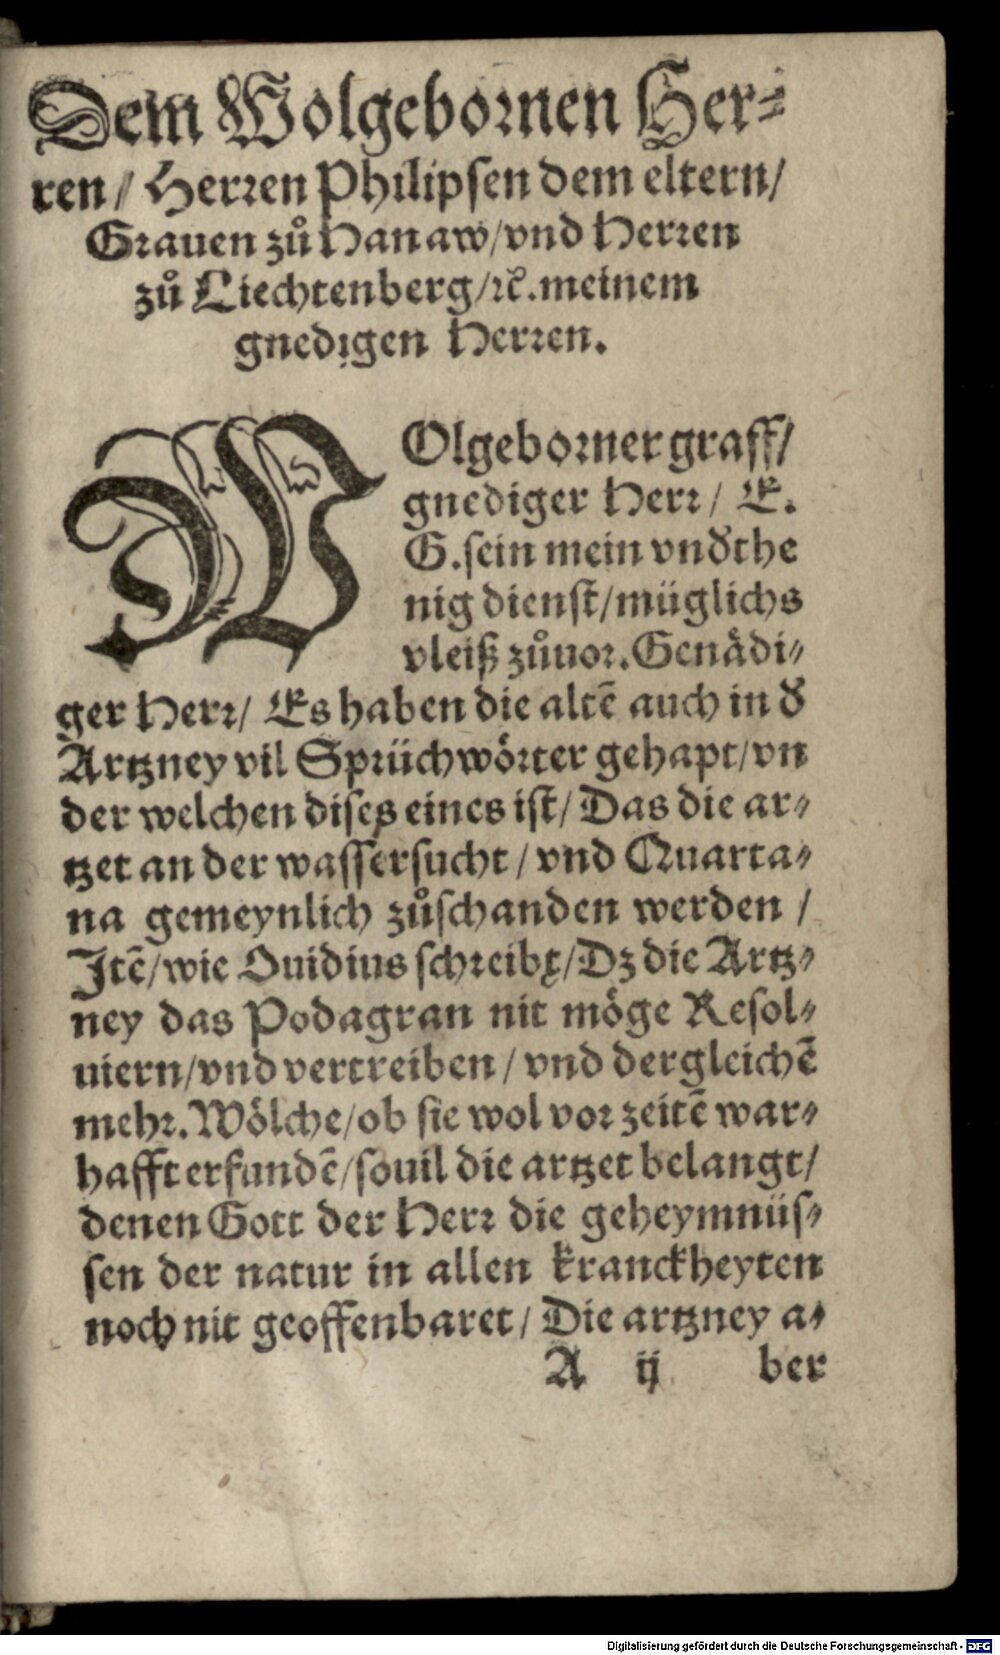 Dem Wolgebornen Her⸗
ren/ Herren Philipsen dem eltern/
Grauen zů Hanaw/vnd Herren
zů Liechtenberg/ꝛc̃.meinem
gnedigen Herren.
WOlgeborner graff/
gnediger Herr/ E.
G.sein mein vnđthe
nig dienst/müglichs
vleiß zůuor.Genådi⸗
ger Herr/ Es haben die altẽ auch in đ
Artzney vil Sprüchwörter gehapt/vn
der welchen dises eines ist/ Das die ar⸗
tzet an der wassersucht/ vnd Quarta⸗
na gemeynlich zůschanden werden /
Jtẽ/wie Ouidius schreibt/Dz die Artz⸗
ney das Podagran nit möge Resol⸗
uiern/vnd vertreiben/ vnd dergleichẽ
mehr.Wölche/ob sie wol vor zeitẽ war⸗
hafft erfundẽ/souil die artzet belangt/
denen Gott der Herr die geheymnüs⸗
sen der natur in allen kranckheyten
noch nit geoffenbaret/ Die artzney a⸗
A ij ber
Digitalisierung gefördert durch die Deutsche Forschungsgemeinschaft - DFG